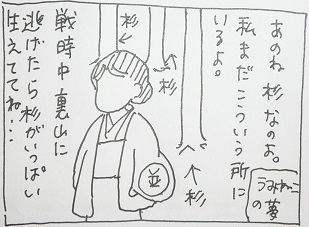 あのね 杉なのよ。
私まだこういう所に
いるよ。
うみねこ
の夢
杉
杉
杉
並
戦時中裏山に
逃げたら杉がいっぱい
生えててね…